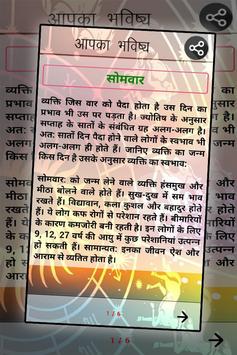 आपका भविष्य
आपका भविष्य
सोमवार
व्यक्ति जिस वार को पैदा होता है उस दिन का
प्रभाव भी उस पर पड़ता है। ज्योतिष के अनुसार
सप्ताह के सातों के संबंधित ग्रह अलग-अलग है।
अत: सातों दिन पैदा होने वाले लोगों के स्वभाव
भी अलग-अलग ही होते हैं। जानिए व्यक्ति का जन्म
किस दिन है उसके अनुसार व्यक्ति का स्वभाव:
सोमवार: को जन्म लेने वाले व्यक्ति हंसमुख और
मीठा बोलने वाले होते हैं। सुख-दुख में सम भाव
रखते हैं। विद्यावान, कला कुशल और बहादुर होते
हैं। ये लोग कफ रोगों से परेशान रहते हैं। बीमारियों
के कारण कमजोरी बनी रहती है। इन लोगों के लिए
9, 12, 27 वर्ष की आयु में कुछ परेशानियां उत्पन्न
हो सकती हैं। सामान्यत: इनका जीवन ऐश और
आराम से व्यतित होता है।
1 / 6
1 / 6